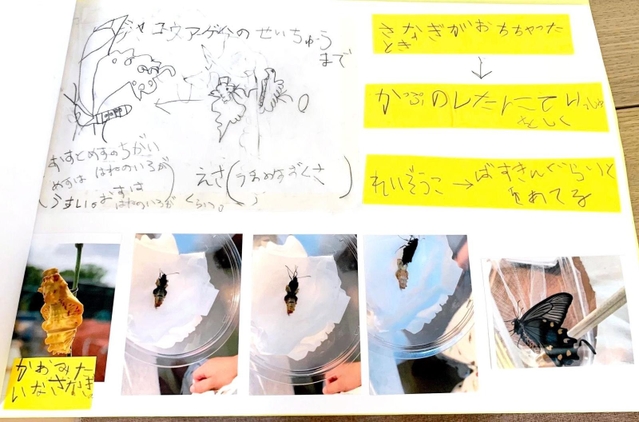 ジャコウアゲハのせいちゅう
まで
おすとめすのちがい
めすは はねのいろが
うすい。おすは
はねのいろが
くろい。
えさ(うまのすずくさ)
さなぎがおちちゃった
とき
↓
かっぷの
れいぞうこ→ばすきんぐらいと
をあてる
かわみたいなさなぎ